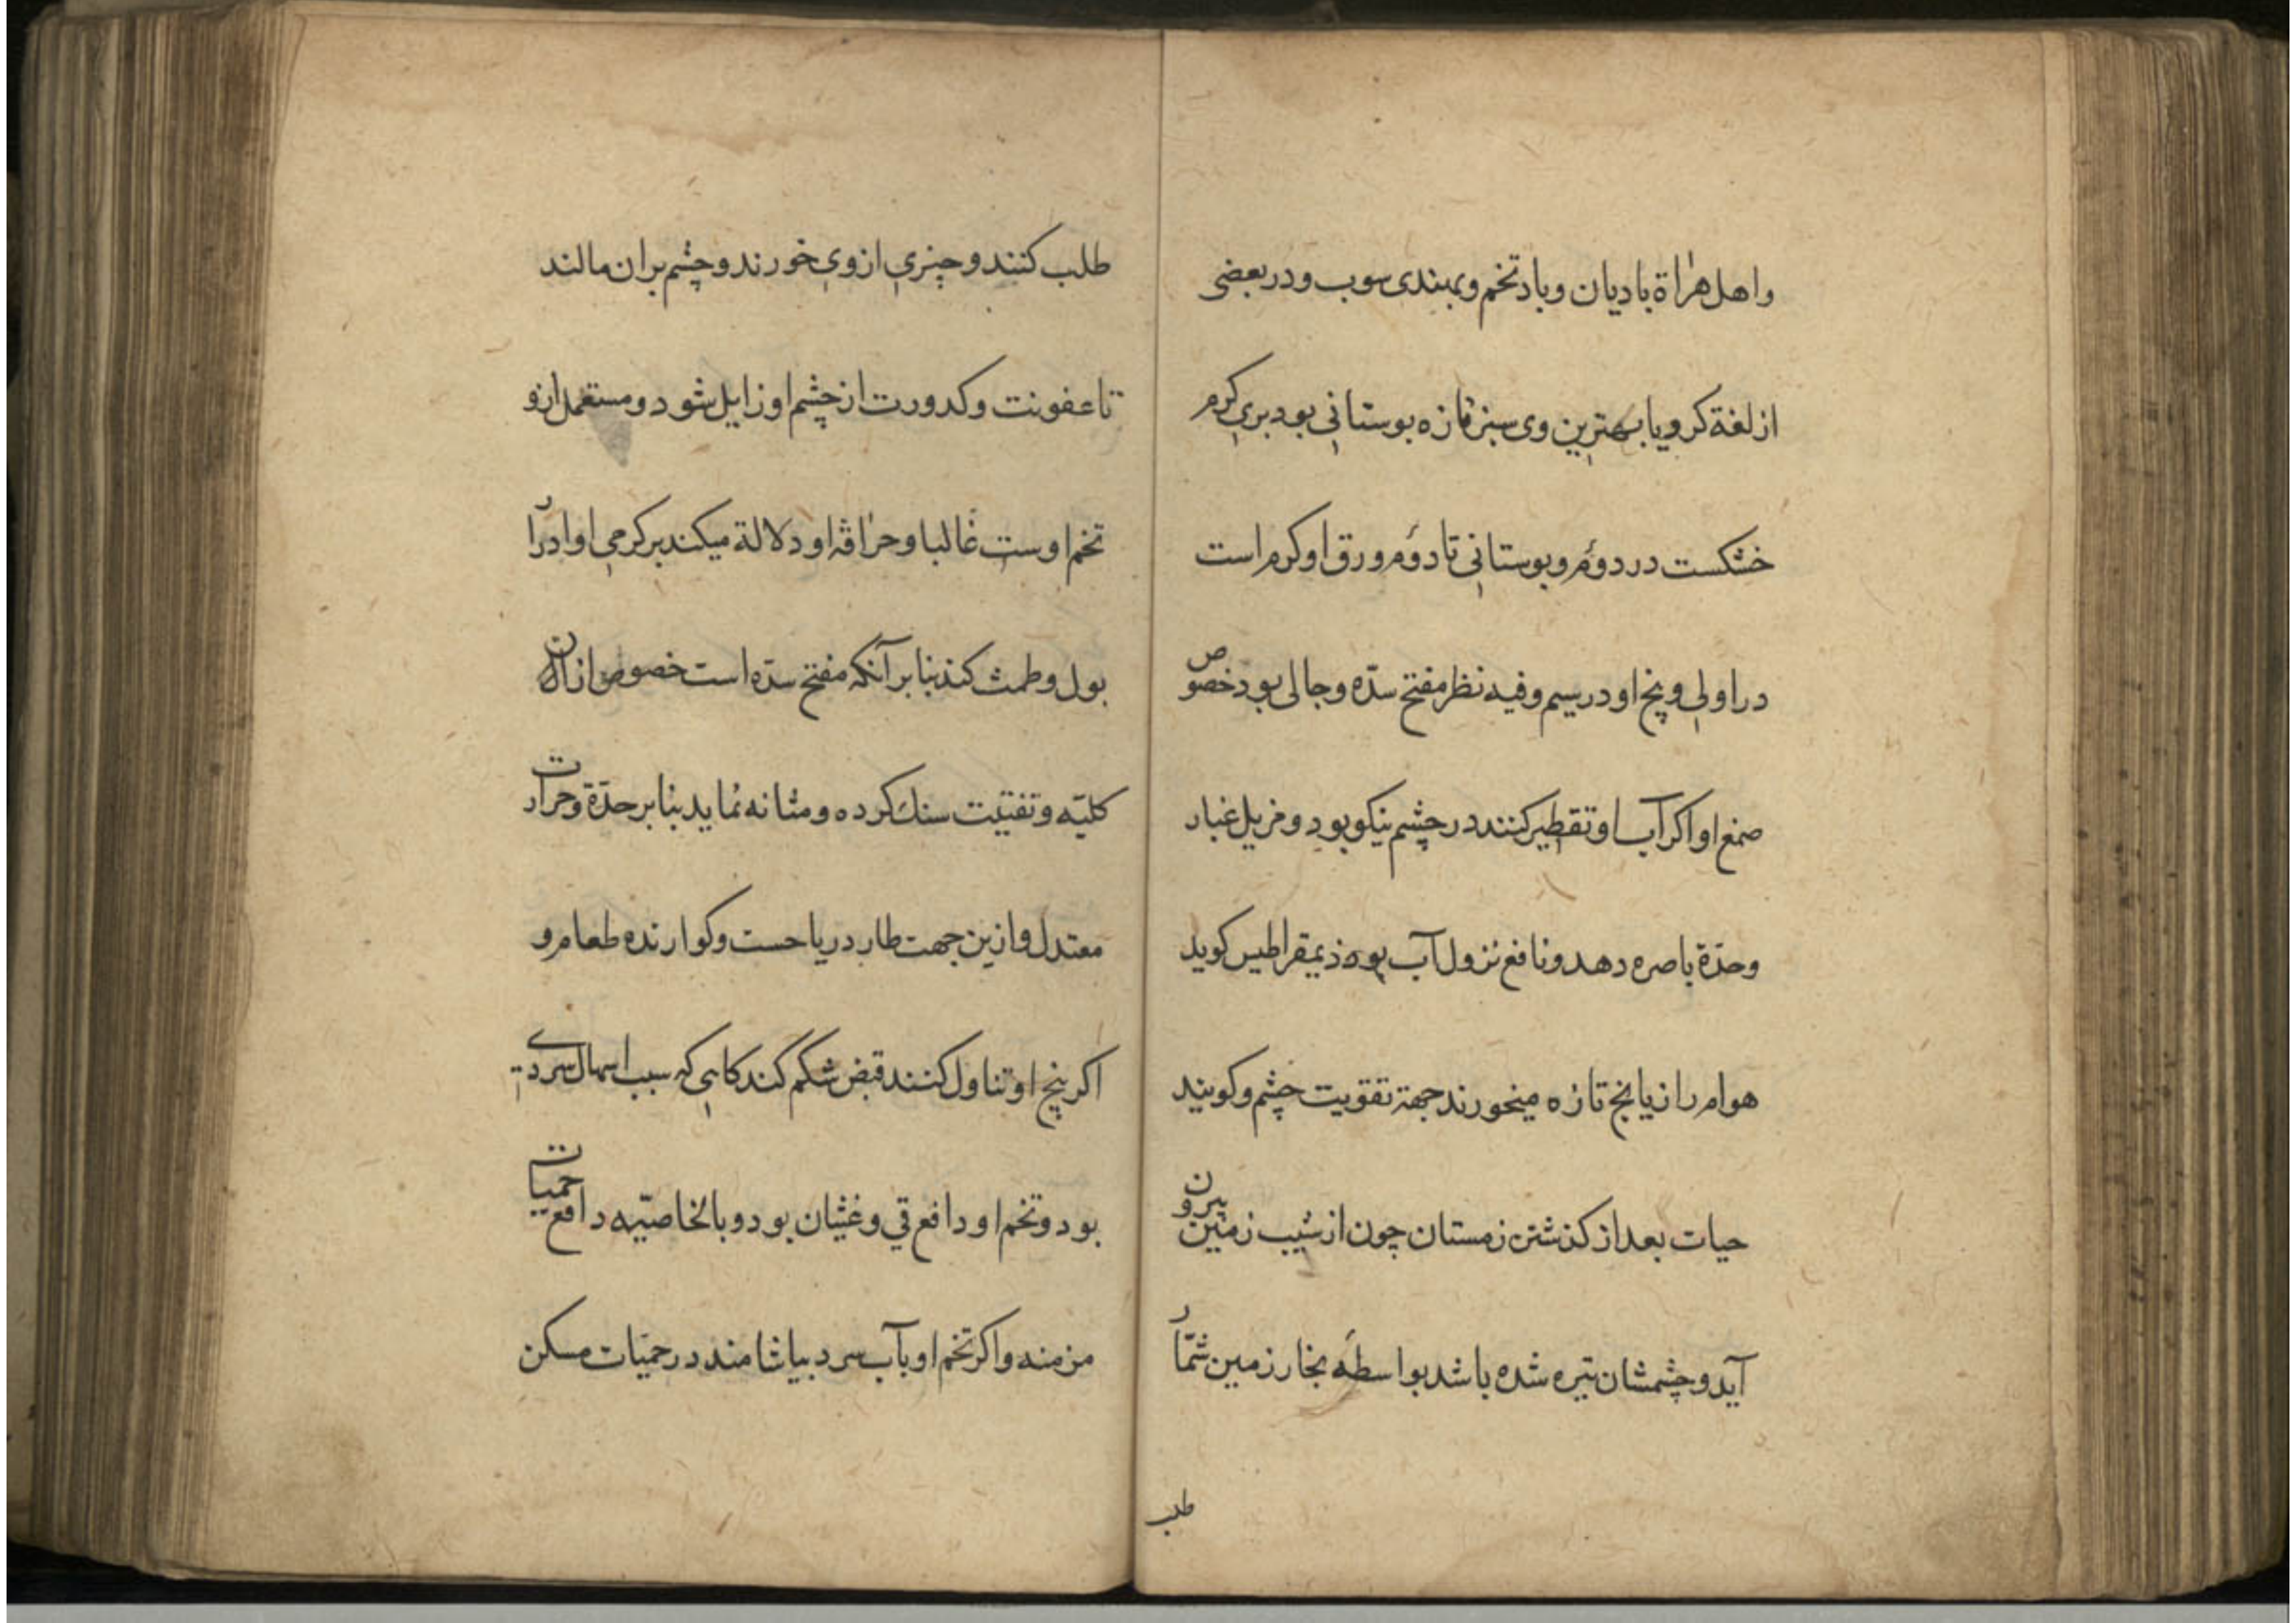 واهل هراة بادیان وبادتخم وبهندی سوب ودر بعضی
از لغة کرویا بهترین وی سبز تازه بوستانی بود بری کرم
خشکست در دوم وبوستانی تا دوم وورق او کرم است
در اولی وبیخ او در سیم وفیه نظر مفتح سدّه وجالی بود خصوص
صمغ او اکر آب او تقطیر کنند در چشم نیکو بود ومزیل غبار
وحدّة باصره دهد ونافع نزول آب بود ذیمقراطیس کوید
هوام رازیانج تازه میخورند جهة تقویت چشم وکویند
حیات بعد از کذشتن زمستان چون از شیب زمین بیرون
آید وچشمشان تیره شده باشد بواسطهٔ بخار زمین شمّار
طلب
طلب کنند وچیزی از وی خورند وچشم بران مالند
تا عفونت وکدورت از چشم او زایل شود ومستعمل ازو
تخم اوست غالبا وحرافة او دلالة میکند بر کرمی او ادرار
بول وطمث کند بنا بر آنکه مفتح سدّه است خصوص ازان
کلیّه وتفتیت سنك کرده ومثانه نماید بنا بر حدّة وحرارت
معتدل وازین جهت طارد ریاحست وکوارنده طعام و
اکر بیخ او تناول کنند قبض شکم کند کاهی که سبب اسهال سردی
بود وتخم او دافع قی وغثیان بود وبالخاصیّه دافع حمیات
مزمنه واکر تخم او بآب سرد بیاشامند در حمیّات مسکن